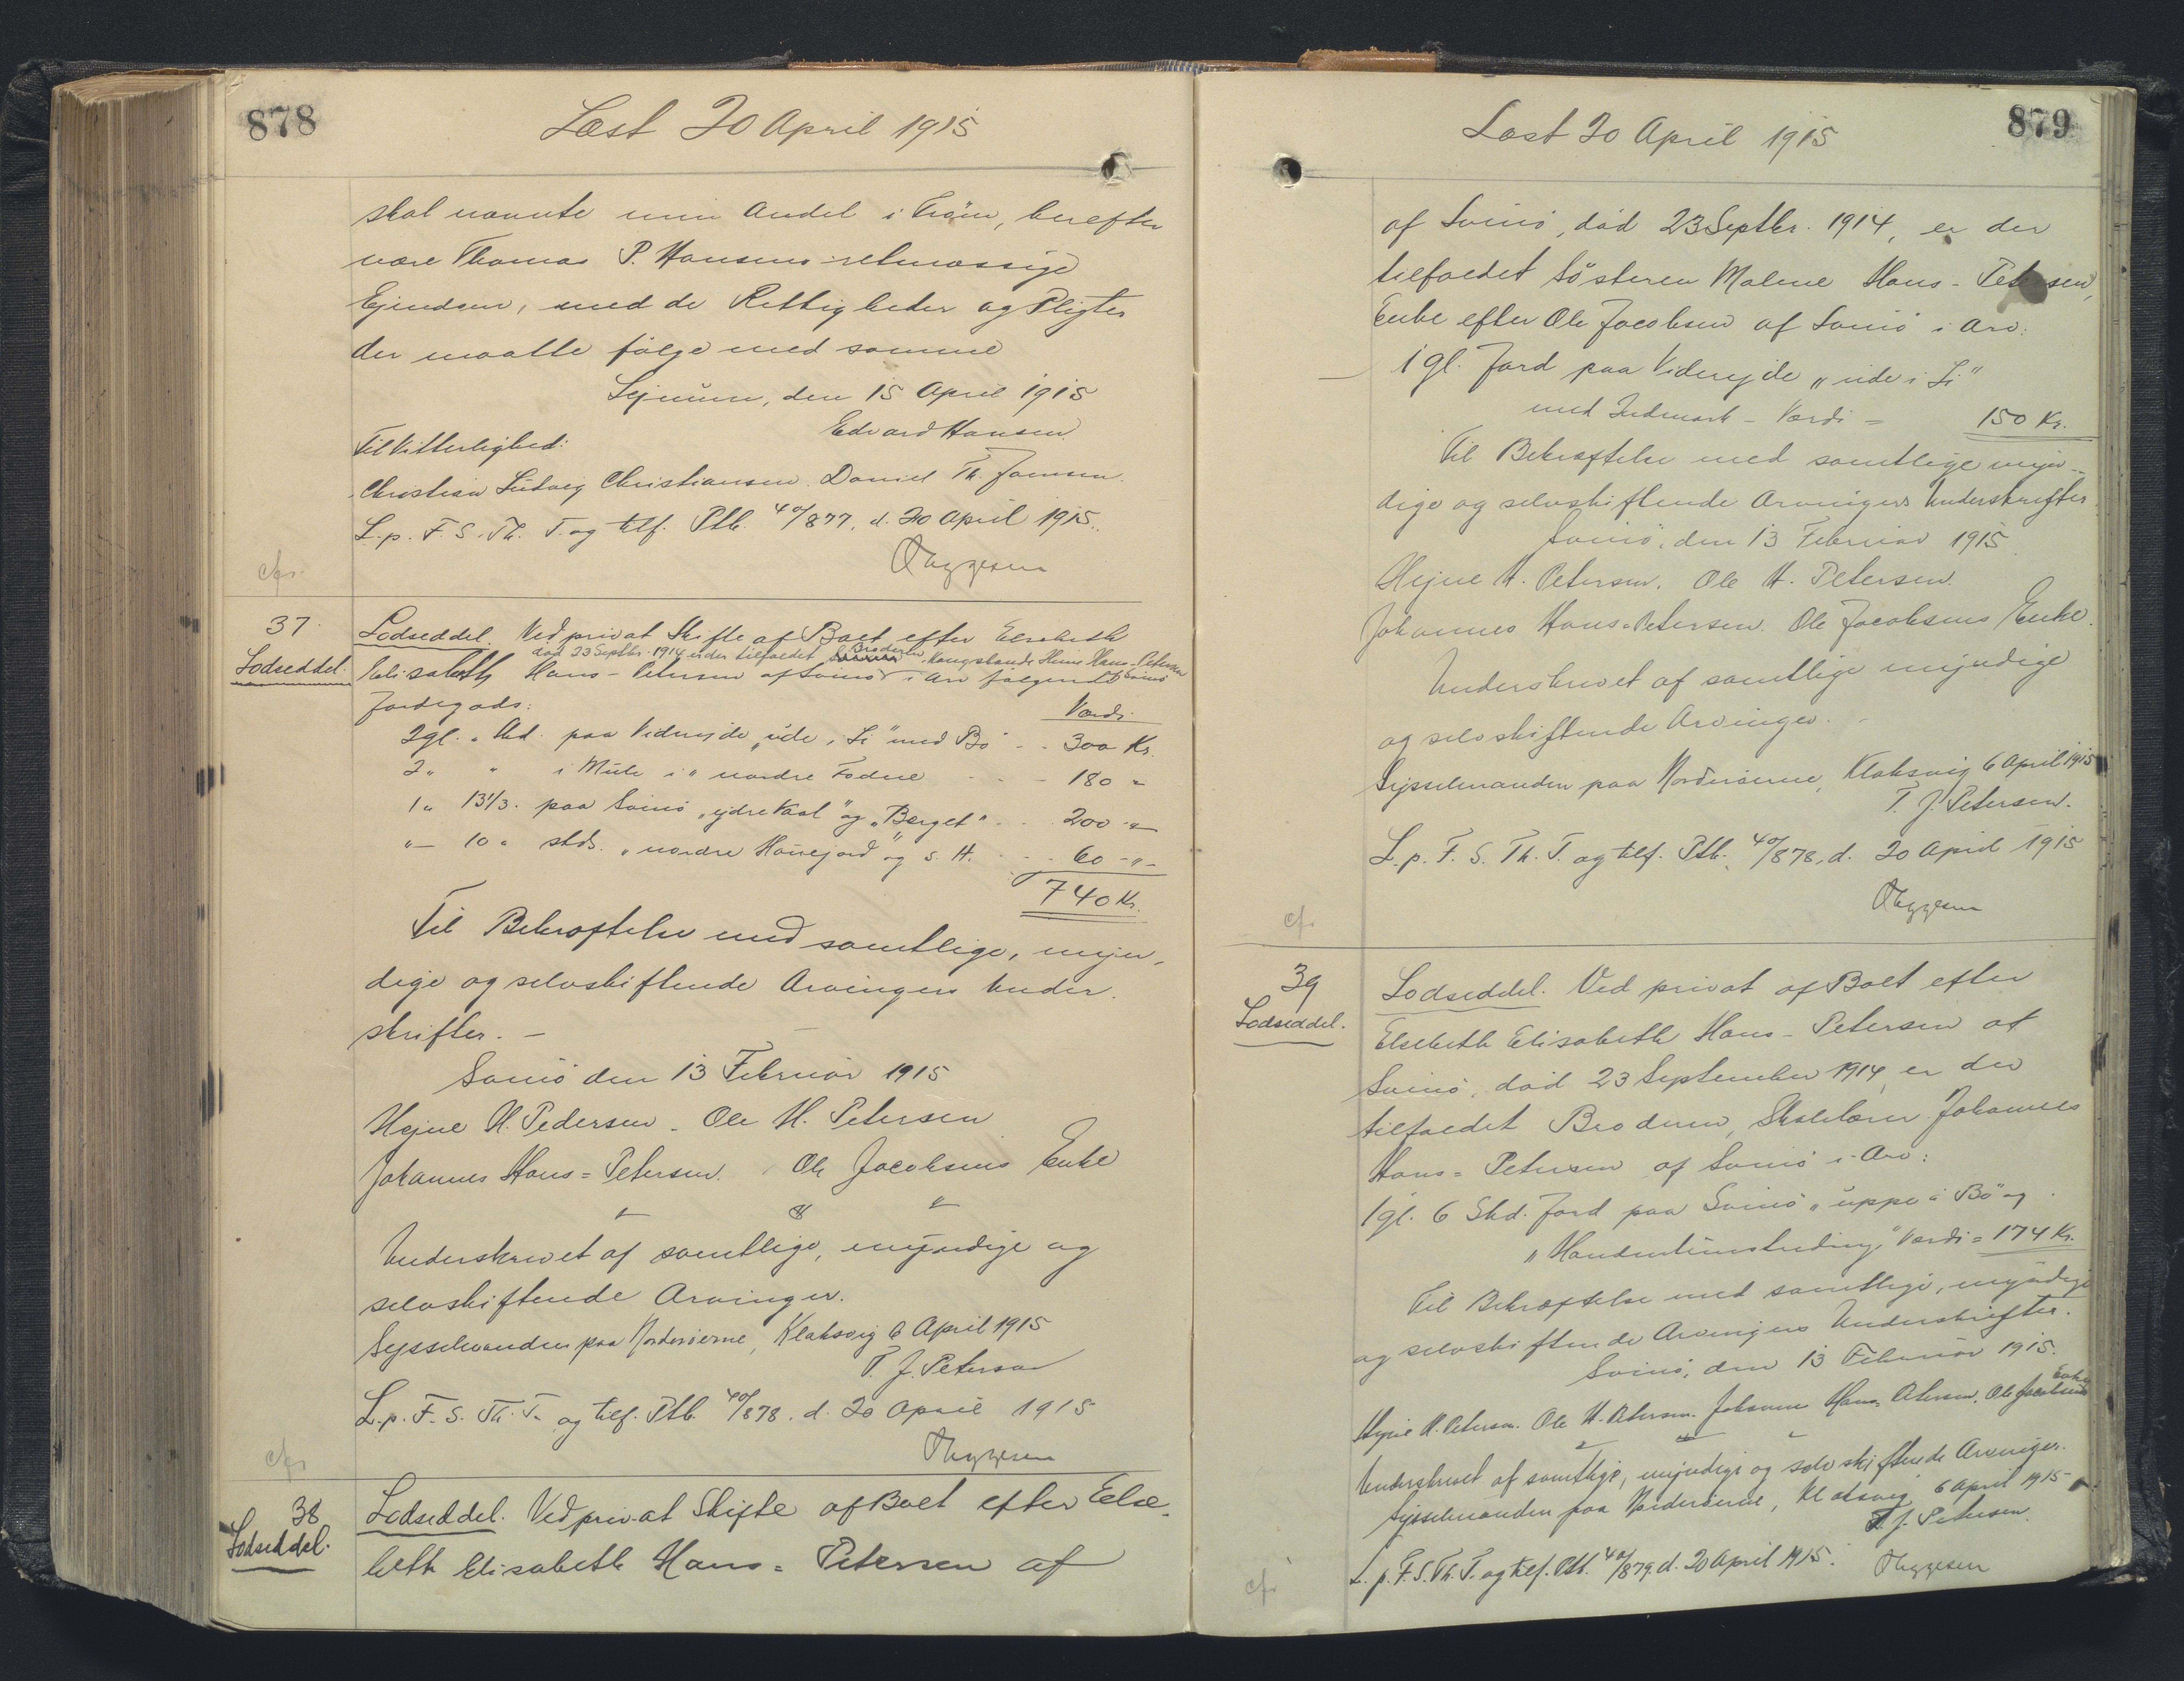 878
Læst 20 April 1915
skal nævnte min Andel i Tröin, herefter
være Thomas P. Hansens retmæssige
Ejendom, med de Rettigheder og Pligter
der maatte følge med samme
Sejnum, den 15 April 1915
Edvard Hansen
Til Vitterlighed:
Christian Ludvig Christiansen. Daniel Th. Joensen.
L. p. F. S. Th. T. og tilf. Ptb. 40/877, d. 20 April 1915.
Thygesen
cfr.
37
Lodseddel.
Lodseddel. Ved privat Skifte af Boet efter Elsebeth
död 23 Septbr. 1914 er der tilfaldet Broderen, Kongsbonde Heine Hans-Petersen
Elisabeth Hans-Petersen af Svinö i Arv følgende Svinö
Jordegods:
Værdi
2 gl. " Skd. paa Viderejde "ude i Li" med Bö - - 300 Kr.
2 " " i Mule i " nordre Todne - - - 180 "
1 " 13 1/3. paa Svinö "ydre Kast" og "Berget" - - 200 "
"- 10 " stds. "nordre Hausejord" og s. H. - - 60 -"-
740 Kr.
Til Bekræftelse med samtlige, myn-
dige og selvskiftende Arvingers Under-
skrifter. -
Svinö den 13 Februar 1915
Hejne H. Pedersen. Ole H. Petersen
Johannes Hans=Petersen. Ole Jacobsens Enke
Underskrevet af samtlige, myndige og
selvskiftende Arvinger.
Sysselmanden paa Norderöerne, Klaksvig 6 April 1915
T. J. Petersen
L. p. F. S. Th. T. og tilf. Ptb. 40/878. d. 20 April 1915
Thygesen
cfr
38
Lodseddel.
Lodseddel. Ved privat Skifte af Boet efter Else-
beth Elisabeth Hans=Petersen af
879
Læst 20 April 1915
af Svinö, död 23 Septbr. 1914, er der
tilfaldet Sösteren Malene Hans-Petersen,
Enke efter Ole Jacobsen af Svinö i Arv:
1 gl. Jord paa Viderejde "ude i Li"
med Indmark - Værdi = 150 Kr.
Til Bekræftelse med samtlige myn-
dige og selvskiftende Arvingers Underskrifter
Svinö, den 13 Februar 1915
Hejne H. Petersen. Ole H. Petersen.
Johannes Hans=Petersen. Ole Jacobsens Enke.
Underskrevet af samtlige myndige
og selvskiftende Arvinger. -
Sysselmanden paa Norderöerne, Klaksvig 6 April 1915
T. J. Petersen.
L. p. F. S. Th. T. og tilf. Ptb. 40/878, d. 20 April 1915
Thygesen
cfr
39
Lodseddel.
Lodseddel. Ved privat af Boet efter
Elsebeth Elisabeth Hans-Petersen af
Svinö, död 23 September 1914, er der
tilfaldet Broderen, Skolelærer Johannes
Hans=Petersen af Svinö i Arv:
1 gl. 6 Skd. Jord paa Svinö "uppe i Bö" og
Værdi = 174 Kr.
Til Bekræftelse med samtlige, myndige
og selvskiftende Arvingers Underskrifter.
Svinö, den 13 Februar 1915.
Hejne H. Petersen. Ole H. Petersen. Johannes Hans Petersen. Ole Jacobsens Enke
Underskrevet af samtlige, myndige og selvskiftende Arvinger.
Sysselmanden paa Norderöerne, Klaksvig 6 April 1915
T. J. Petersen.
L. p. F. S. Th. T. og tilf. Ptb. 40/879 d. 20 April 1915.
Thygesen
cfr